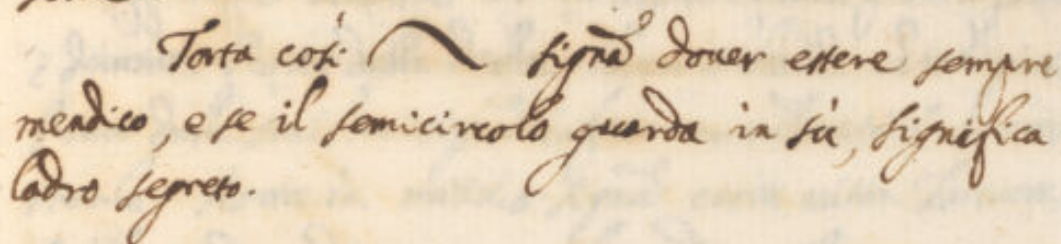 Torta così signa dover essere sempre
mendico, e se il semicircolo guarda in sù, significa
ladro segreto.